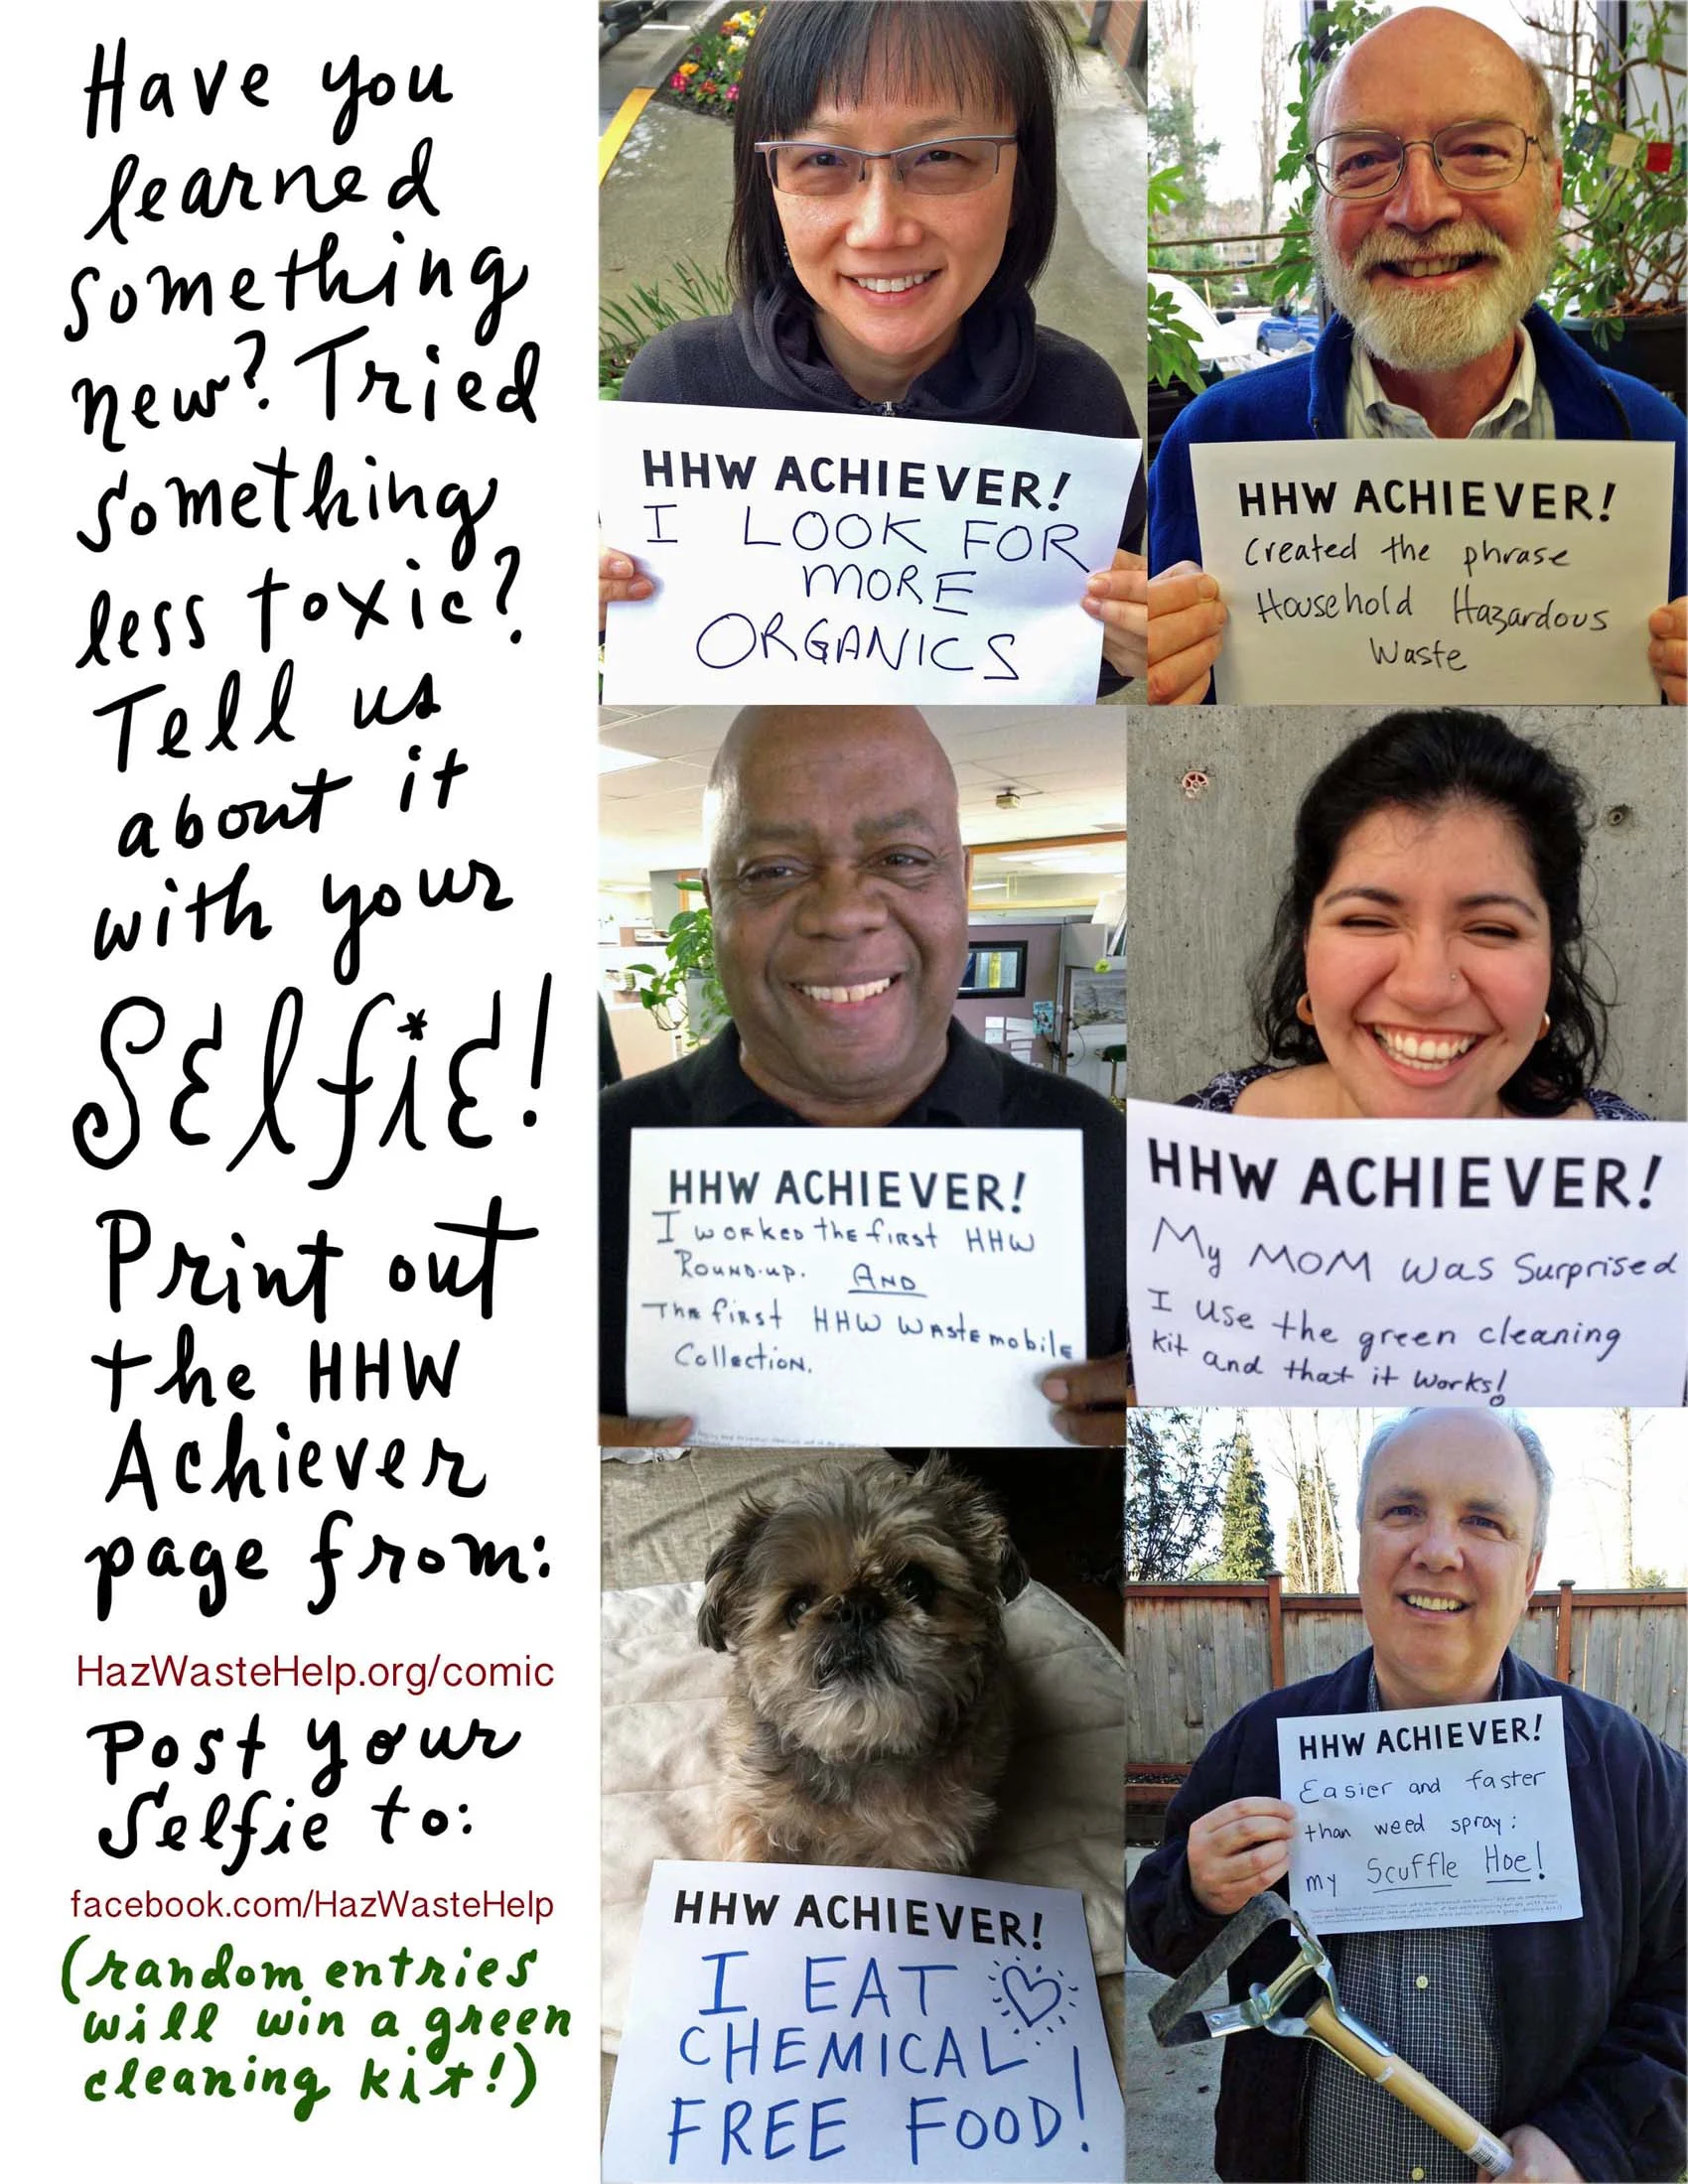 Have you
learned
something
new? Tried
something
less toxic?
Tell us
about it
with your
Selfie!
Print out
the HHW
Achiever
page from:
HazWasteHelp.org/comic
Post your
Selfie to:
facebook.com/HazWasteHelp
(random entries
will win a green
cleaning kit!)
HHW ACHIEVER!
I LOOK FOR
MORE
ORGANICS
HHW ACHIEVER!
Created the phrase
Household Hazardous
Waste
HHW ACHIEVER!
I worked the first HHW
Round-up. AND
The first HHW Wastemobile
Collection.
HHW ACHIEVER!
My MOM was Surprised
I use the green cleaning
kit and that it works!
HHW ACHIEVER!
I EAT
CHEMICAL
FREE FOOD!
HHW ACHIEVER!
Easier and faster
than weed spray:
my Scuffle Hoe!